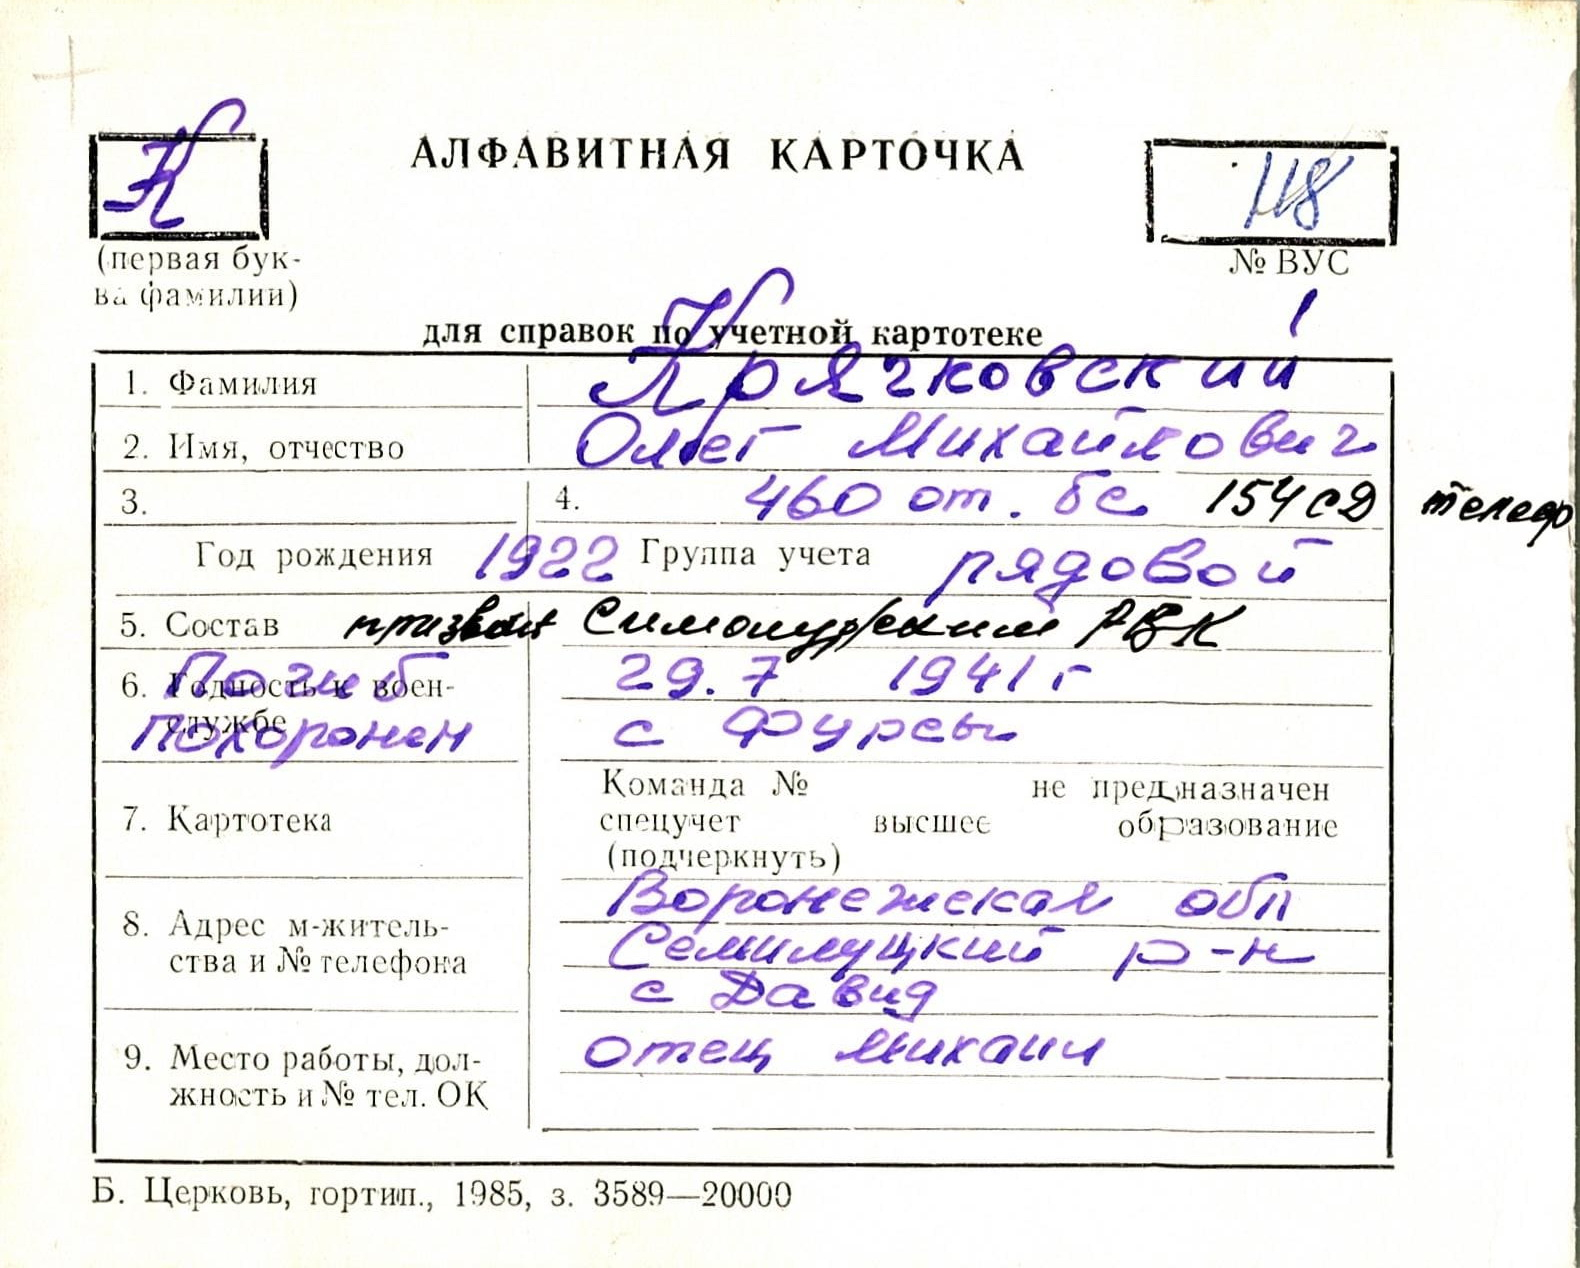 К
АЛФАВИТНАЯ КАРТОЧКА
118
(первая бук-
ва фамилии)
№ ВУС
для справок по учетной картотеке
1. Фамилия Крячковский
2. Имя, отчество Олег Михайлович
3. 4. 460 от. бс 154 сд телеф
Год рождения 1922 Группа учета рядовой
5. Состав призван РВК
6. Годность к воен- Погиб 29.7 1941 г
службе Похоронен с Фурсы
7. Картотека
Команда № не предназначен
спецучет высшее образование
(подчеркнуть)
8. Адрес м-житель-
ства и № телефона
Воронежская обл
Семилуцкий р-н
с Давид
9. Место работы, дол-
жность и № тел. ОК
отец Михаил
Б. Церковь, гортип., 1985, з. 3589—20000